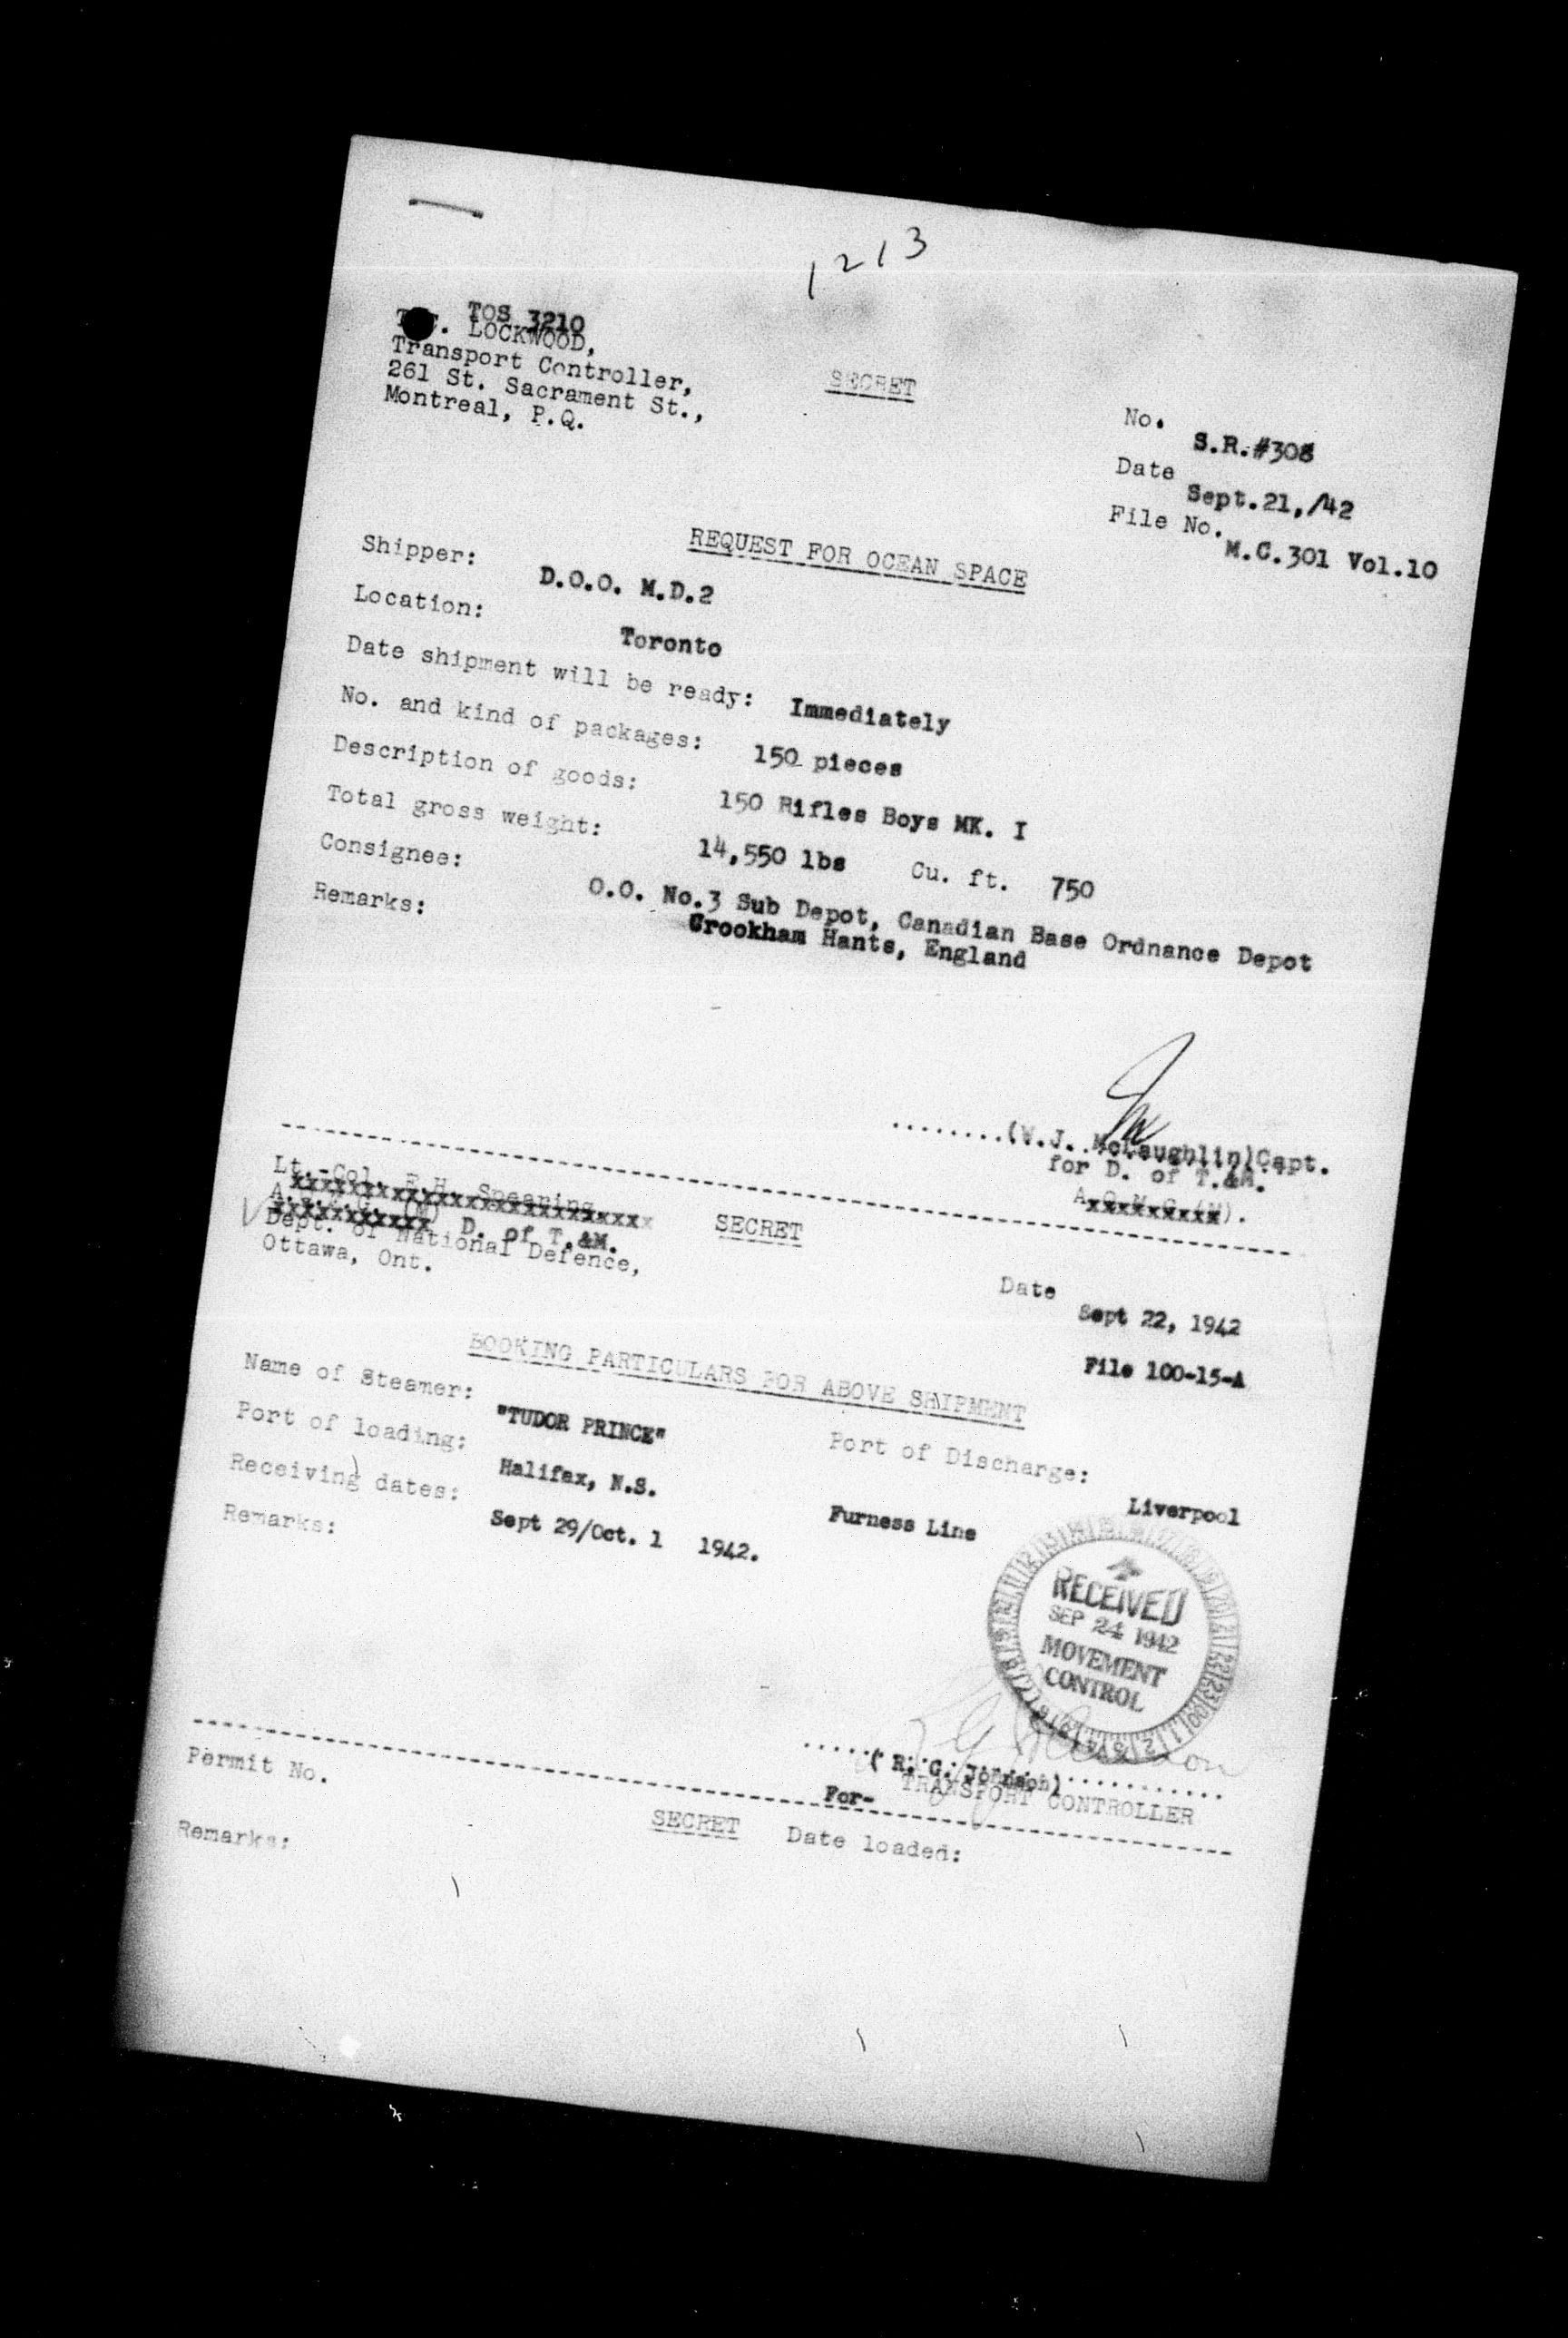 1213
TOS 3210
LOCKWOOD,
Transport Controller,
261 St. Sacrament St.,
Montreal, P.Q.
SECRET
No. S.R.#308
Date Sept.21,/42
File No. M.C.301 Vol.10
REQUEST FOR OCEAN SPACE
Shipper: D.O.O. M.D.2
Location: Toronto
Date shipment will be ready: Immediately
No. and kind of packages: 150 pieces
Description of goods: 150 Rifles Boys MK. I
Total gross weight: 14,550 lbs Cu. ft. 750
Consignee: O.O. No.3 Sub Depot, Canadian Base Ordnance Depot
Crookham Hants, England
Remarks:
........(W.J. McLaughlin)Capt.
for D. of T.&M.
A.Q.M.G.(M).
Lt.-Col. E.H. Spearing,
A.Q.M.G. (M) D. of T.&M.
Dept. of National Defence,
Ottawa, Ont.
SECRET
Date Sept 22, 1942
File 100-15-A
BOOKING PARTICULARS FOR ABOVE SHIPMENT
Name of Steamer: "TUDOR PRINCE"
Port of loading: Halifax, N.S. Port of Discharge: Liverpool
Receiving dates: Sept 29/Oct. 1 1942. Furness Line
Remarks:
RECEIVED
SEP 24 1942
MOVEMENT
CONTROL
( R. G. Johnson)
For- TRANSPORT CONTROLLER
Permit No.
SECRET Date loaded:
Remarks: